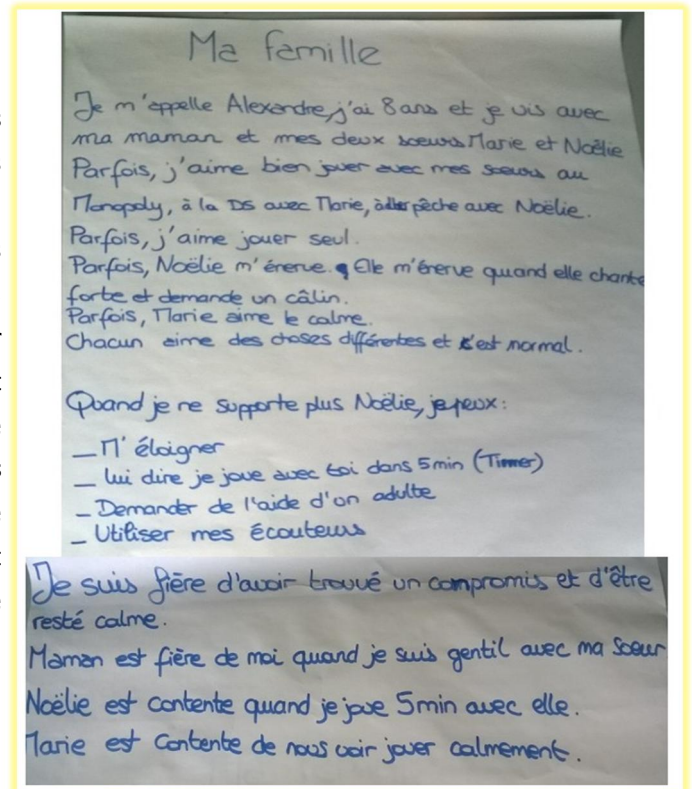 Ma famille
Je m'appelle Alexandre, j'ai 8 ans et je vis avec
ma maman et mes deux soeurs Marie et Noëlie
Parfois, j'aime bien jouer avec mes soeurs au
Monopoly, à la DS avec Marie, à la pêche avec Noëlie.
Parfois, j'aime jouer seul.
Parfois, Noëlie m'énerve. Elle m'énerve quand elle chante
forte et demande un câlin.
Parfois, Marie aime le calme.
Chacun aime des choses différentes et c'est normal.
Quand je ne supporte plus Noëlie, je peux :
_ M'éloigner
_ lui dire je joue avec toi dans 5 min (Timer)
_ Demander de l'aide d'un adulte
_ Utiliser mes écouteurs
Je suis fière d'avoir trouvé un compromis et d'être
resté calme.
Maman est fière de moi quand je suis gentil avec ma soeur
Noëlie est contente quand je joue 5 min avec elle.
Marie est contente de nous voir jouer calmement.